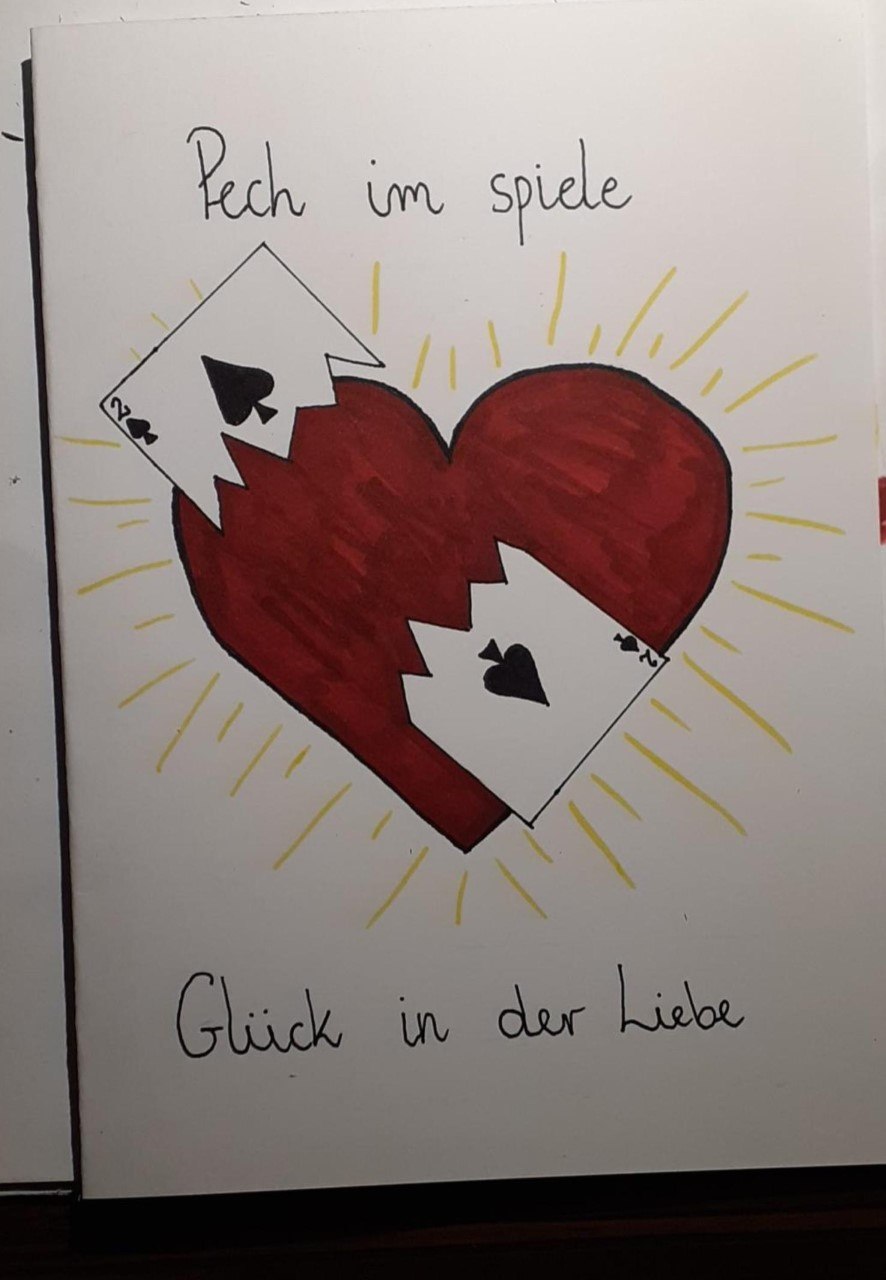 Pech im spiele
2
2
Glück in der Liebe